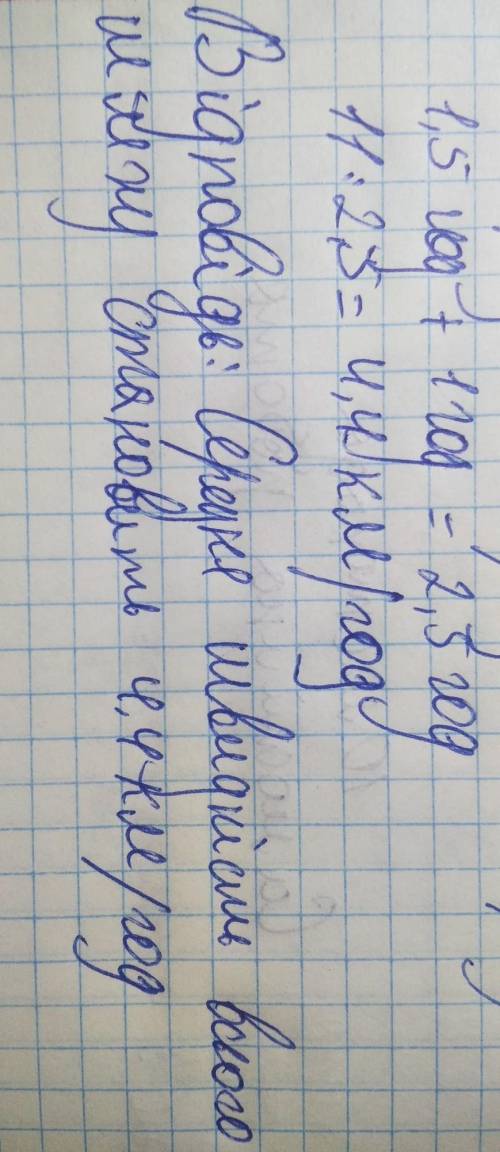 1,5 год + 1 год = 2,5 год
11 : 2,5 = 4,4 км/год
Відповідь: Середня швидкість всього
шляху становить 4,4 км/год